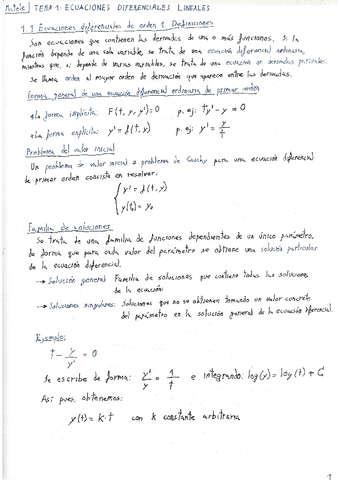 Matele | TEMA 1: ECUACIONES DIFERENCIALES LINEALES
1.1 Ecuaciones diferenciales de orden 1. Definiciones
Son ecuaciones que contienen las derivadas de una o más funciones. Si la
función depende de una sola variable, se trata de una ecuación diferencial ordinaria,
mientras que, si depende de varias variables, se trata de una ecuación en derivadas parciales.
Se llama orden al mayor orden de derivación que aparece entre las derivadas.
Forma general de una ecuación diferencial ordinaria de primer orden
*La forma implícita: F(t, y, y')=0 p. ej: ty' - y = 0
*La forma explícita: y' = f(t, y) p. ej: y' = y/t
Problema del valor inicial
Un problema de valor inicial o problema de Cauchy para una ecuación diferencial
de primer orden consiste en resolver:
{ y' = f(t, y)
y(t₀) = y₀
Familia de soluciones
Se trata de una familia de funciones dependientes de un único parámetro,
de forma que para cada valor del parámetro se obtiene una solución particular
de la ecuación diferencial.
→ Solución general: Familia de soluciones que contiene todas las soluciones
de la ecuación.
→ Soluciones singulares: Soluciones que no se obtienen tomando un valor concreto
del parámetro en la solución general de la ecuación diferencial.
Ejemplo:
t - y/y' = 0
Se escribe de forma: y'/y = 1/t e integrando: log(y) = log(t) + C
Así pues, obtenemos:
y(t) = k·t con k constante arbitraria
1